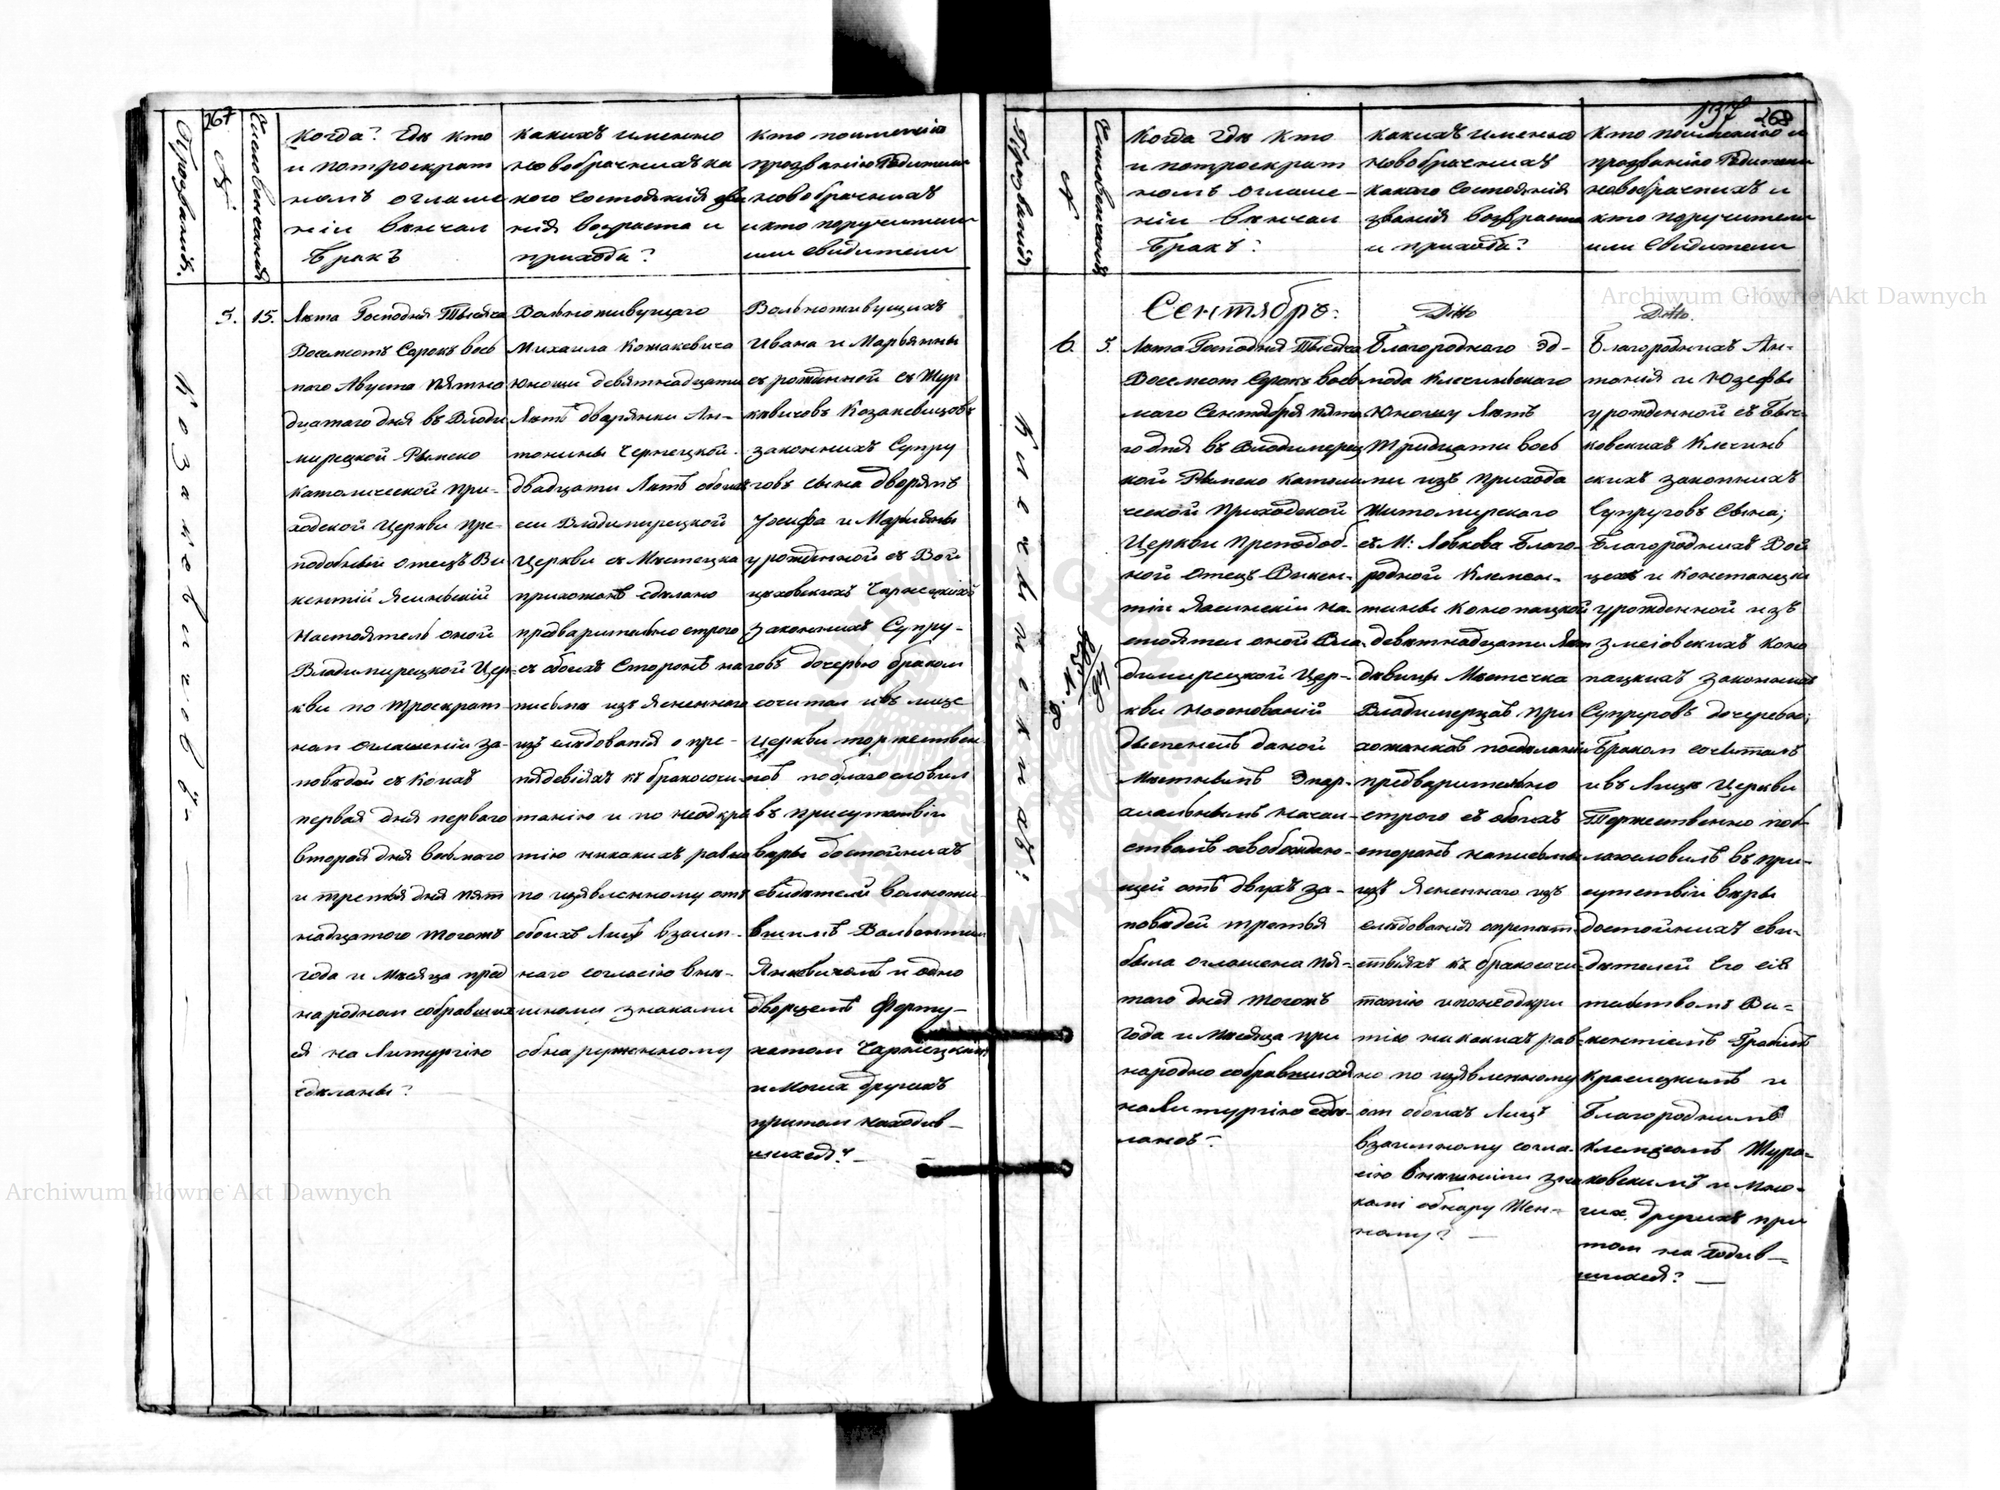 267
Прозванія.
№
Числовенчанія
Когда? Гдѣ кто
и потроекрат
номъ оглаше
ніи вѣнчал
Бракъ
какихъ именно
новобрачныхъ ка
кого состоянія зва
нія возраста и
прихода?
Кто поименно
прозванію Родители
новобрачныхъ
и кто поручители
или свидители
Козакевичовъ
5.
15.
Лѣта Господня Тысяча
Восемсотъ Сорокъ вось
маго Августа пятна
дцатаго дня въ Влоди
мирецкой Рымско
Католической при-
ходской Церкви пре-
подобный отецъ Ви
кентій Ясинскій
Настоятель оной
Владимирецкой Цер-
кви по троекрат-
ном оглашеніи за-
повѣдей съ коихъ
первая дня перваго
вторая дня восьмаго
и третья дня пят
надцатого тогожъ
года и месяца пред
народном собравших
ся на Литургію
сдѣланы?
Вольноживущаго
Михаила Кожакевича
Юноши девятнадцати
Лѣтъ дворянки Ан-
тонины Чернецкой
двадцати Лѣтъ обоихъ
сей Владимирецкой
Церкви съ Местечка
прихожанъ сдѣлано
предварительно строго
съ обоихъ Сторонъ на
письмѣ изъясненного
изъ следованія о пре-
пядсвіяхъ къ бракосочи-
танію и по неоткры
тію никакихъ равно
по изъявленному отъ
обоихъ Лицъ взаим-
наго согласію внѣ-
шными знаками
обнаруженному
Вольноживущихъ
Ивана и Марьянны
съ рожденной съ Жур
кевичовъ Козакевичовъ
законныхъ Супру
говъ сына дворянъ
Іосифа и Марьяны
урожденной съ Вой
цѣховскихъ Чарнецкихъ
законныхъ Супру-
говъ дочерью браком
сочитал и въ лице
Церкви торжествен
но поблагословил
въ присутствіи
вѣры достойныхъ
свидѣтелей вольножи-
вшимъ Валентим
Янкевичомъ и одно
дворцемъ Форту-
натом Чарнецким
и многих другихъ
притом находив-
шихся?
137
268
Прозваній
№
Числовенчанія
Когда Гдѣ кто
и потроекрат
номъ оглаше-
ніи вѣнчал
Бракъ?
какихъ именно
новобрачныхъ
какого состоянія
званія возраста
и прихода?
Кто поименно и
прозванію Родители
новобрачныхъ и
кто поручители
или Свидители
Сентябръ:
Ditto
Ditto.
6.
5.
Лѣта Господня Тысяча
Восемсот Сорокъ вось
маго Сентября пята
го дня въ Владимерец
кой Рымско Католи
ческой Приходской
Церкви Преподоб-
ной Отецъ Викен-
тій Ясинскій на-
стоятел оной Вла-
димирецкой Цер-
кви на основаній
даной
Местнымъ Эпар-
хиальнымъ начал-
ствомъ освобождаю-
щей отъ двухъ за-
повѣдей третья
была оглашена пя-
таго дня тогожъ
года и месяца при
народно собравшихся
на Литургію сдѣ-
ланъ-
Благороднаго Эд-
мода Клечинскаго
Юношу Лѣтъ
Тридцати вось
ми изъ прихода
Житомирскаго
съ М: Левкова Благо-
родной Клемен-
тины Конопацкой
девятнадцати Лѣт
дѣвицы Местечка
Владимерцавъ при
хожанковъ
предварительно
строго съ обоихъ
сторонъ написьмѣ
изъ Ясненнаго из
следованія о препят-
ствіяхъ къ бракосочи
танію и понеодкри
тію никакихъ рав
но по изъявленному
от обоихъ Лицъ
взаимному согла-
сію внѣшніми зна
камі обнару Жен-
ному?
Благородныхъ Ан-
тонія и Юзефы
урожденной съ Быс-
ковскихъ Клечинъ
скихъ законныхъ
Супруговъ Сына;
Благородныхъ Вой
цеха и Констанции
урожденной изъ
Змеіовскихъ Коно
пацкихъ законныхъ
Супруговъ дочерью;
Браком сочиталъ
и въ Лице Церкви
Торжественно поб-
лагословилъ въ при-
сутствіи вѣры
достойныхъ сви-
дѣтелей Его сія
тельствомъ Ви-
кентіемъ Грабімъ
Красицкимъ и
Благороднымъ
Клемзомъ Жура-
ковскимъ и мно-
гих другихъ при
том на ходив-
шихся?
Archiwum Główne Akt Dawnych
Archiwum Główne Akt Dawnych